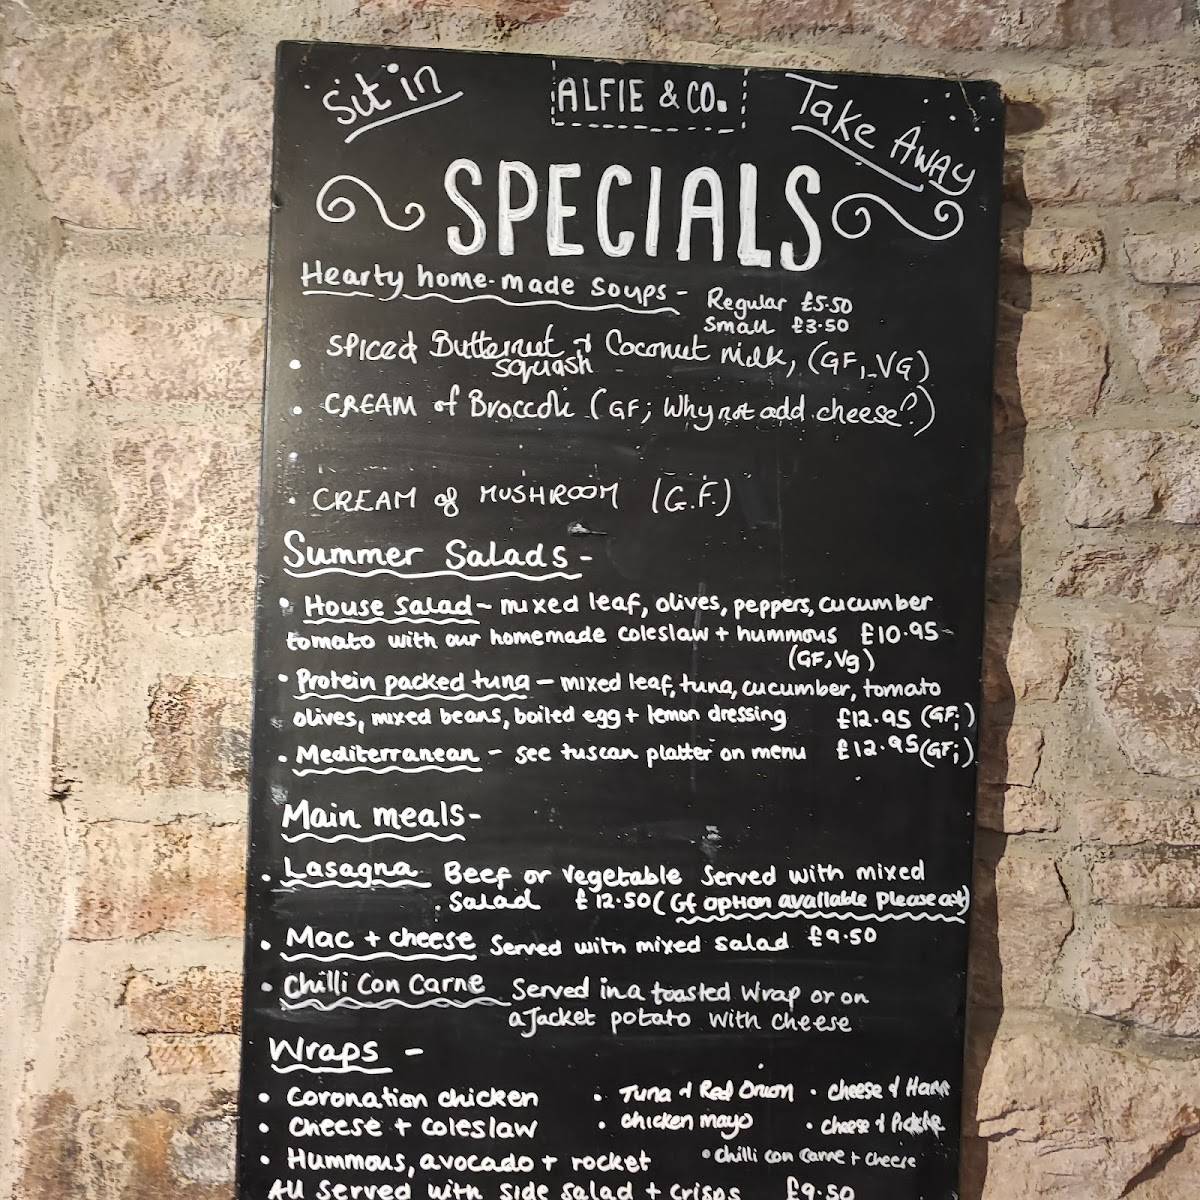 Sit in
ALFIE & CO.
Take AWAY
SPECIALS
Hearty home-made soups - Regular £5.50
Small £3.50
• SPICED Butternut squash & Coconut milk, (GF, VG)
• CREAM of Broccoli (GF; Why not add cheese?)
• CREAM of MUSHROOM (G.F.)
Summer Salads -
• House salad - mixed leaf, olives, peppers, cucumber
tomato with our homemade coleslaw + hummous £10.95
(GF, Vg)
• Protein packed tuna - mixed leaf, tuna, cucumber, tomato
olives, mixed beans, boiled egg + lemon dressing £12.95 (GF;)
• Mediterranean - see tuscan platter on menu £12.95 (GF;)
Main meals -
• Lasagna Beef or Vegetable Served with mixed
Salad £12.50 (Gf option available Please ask)
• Mac + cheese Served with mixed salad £9.50
• Chilli Con Carne Served in a toasted wrap or on
a Jacket potato with cheese
Wraps -
• Coronation chicken • Tuna & Red Onion • cheese & Ham
• Cheese + coleslaw • chicken mayo • cheese & Pickle
• Hummous, avocado + rocket • chilli con carne + cheese
All Served with side salad + crisps £9.50